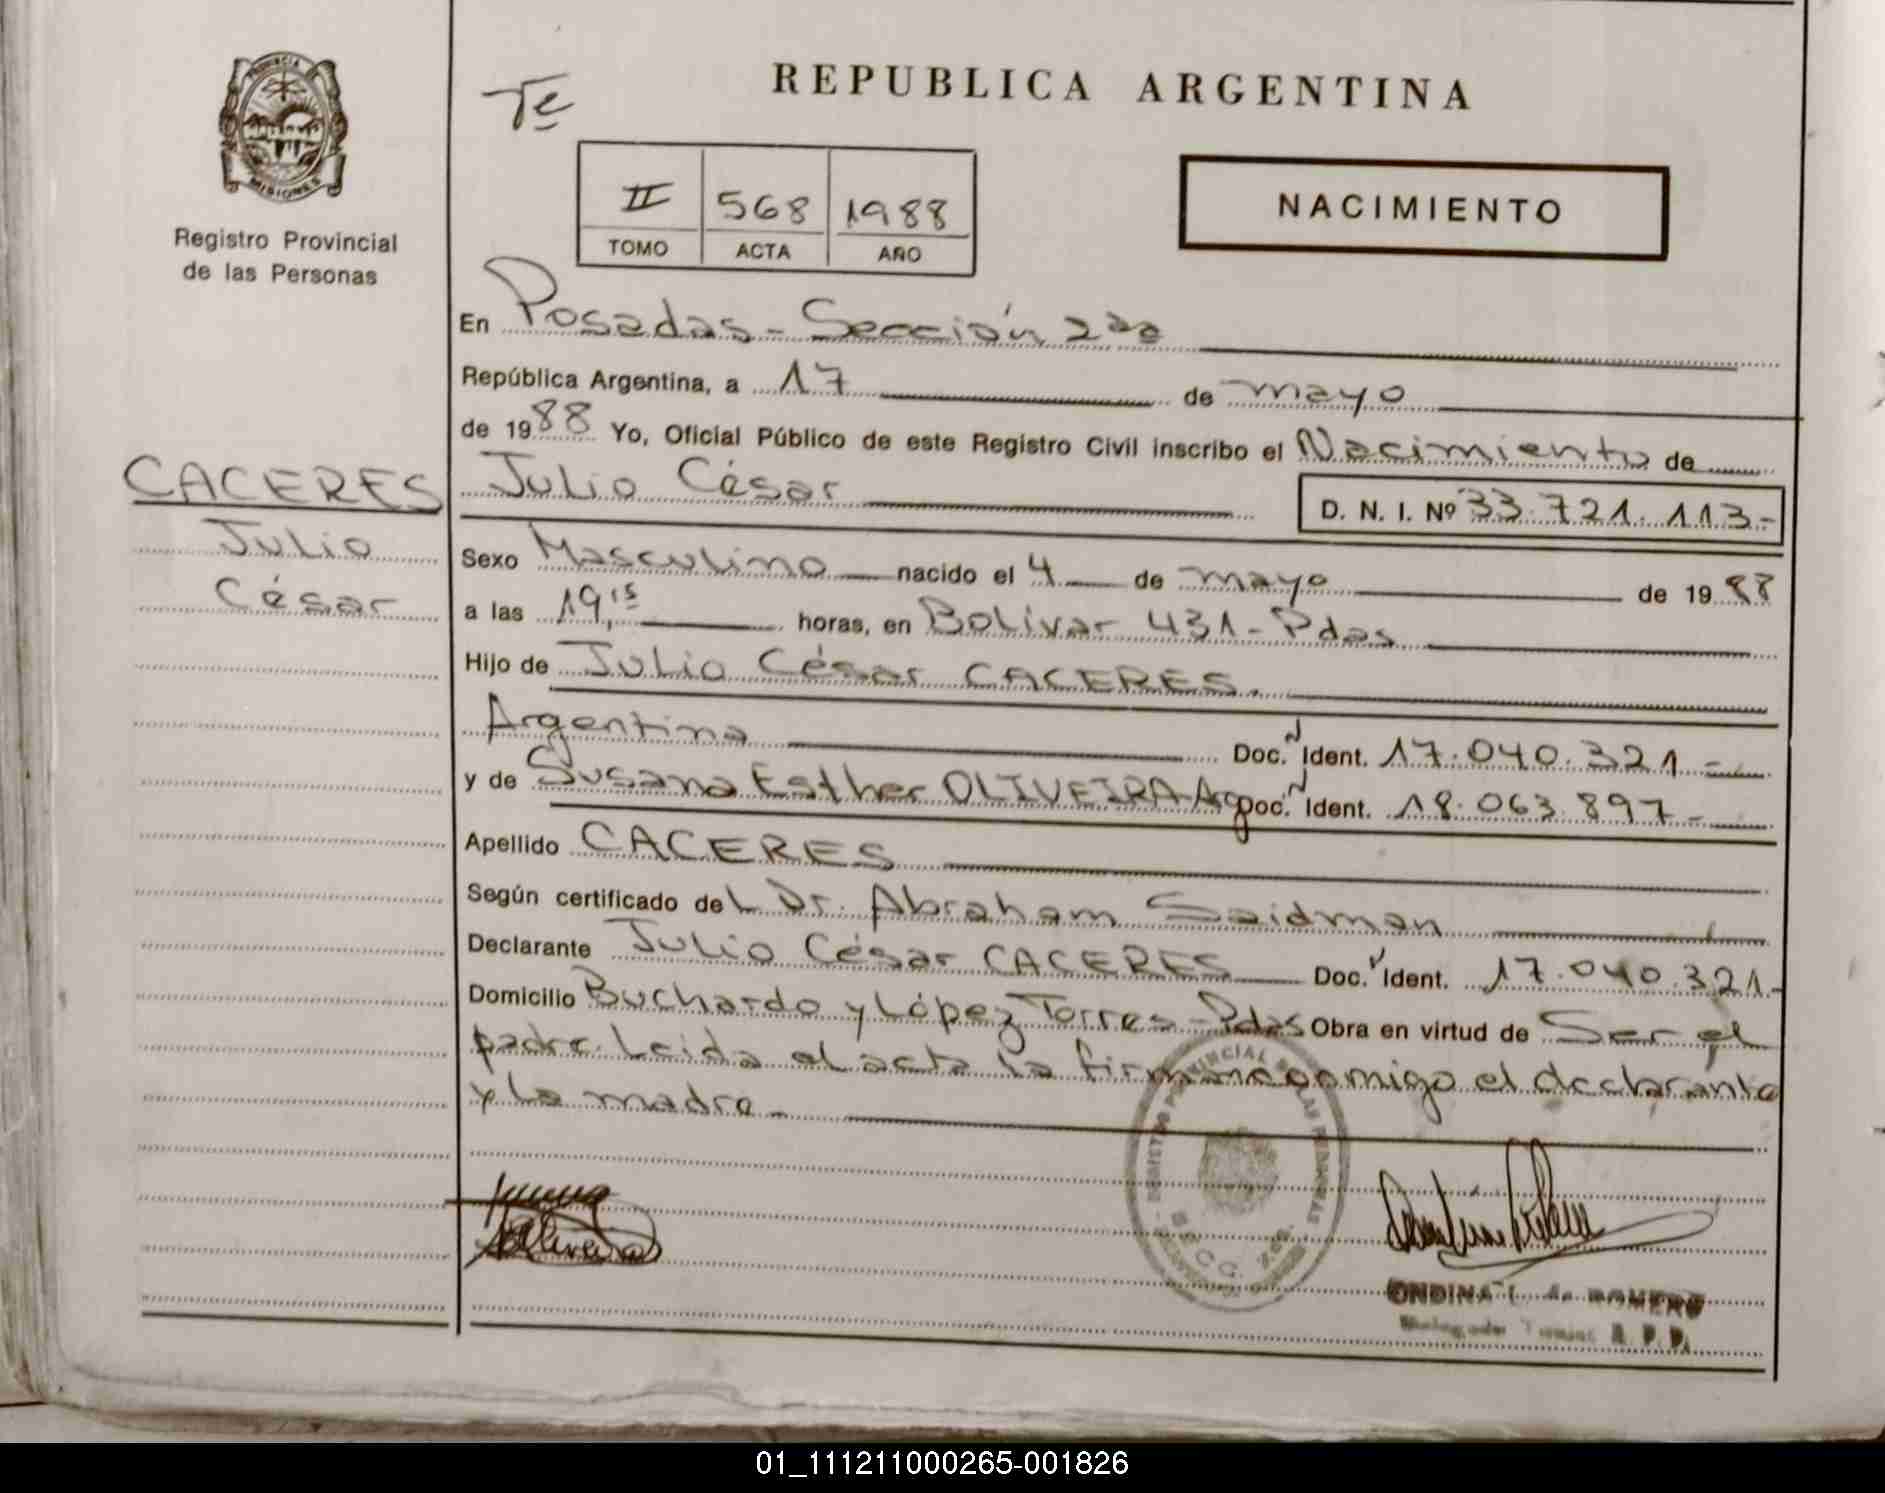 REPUBLICA ARGENTINA
PROVINCIA
MISIONES
Registro Provincial
de las Personas
Te
II 568 1988
TOMO ACTA AÑO
NACIMIENTO
En Posadas - Sección 2da
República Argentina, a 17 de mayo
de 1988 Yo, Oficial Público de este Registro Civil inscribo el Nacimiento de
CACERES
Julio
César
Julio César D. N. I. Nº 33.721.113-
Sexo Masculino nacido el 4 de mayo de 1988
a las 19,15 horas, en Bolívar 431 - Pdas
Hijo de Julio César CACERES.
Argentina Doc. N Ident. 17.040.321 -
y de Susana Esther OLIVEIRA-Arg Doc. N Ident. 18.063.897 -
Apellido CACERES
Según certificado del Dr. Abraham Saidman
Declarante Julio César CACERES Doc. N Ident. 17.040.321.-
Domicilio Buchardo y López Torres - Pdas Obra en virtud de Ser el
padre. Leida el acta la firman conmigo el declarante
y la madre -
REGISTRO PROVINCIAL DE LAS PERSONAS
ONDINA de ROMERO
R. P. P.
01_111211000265-001826